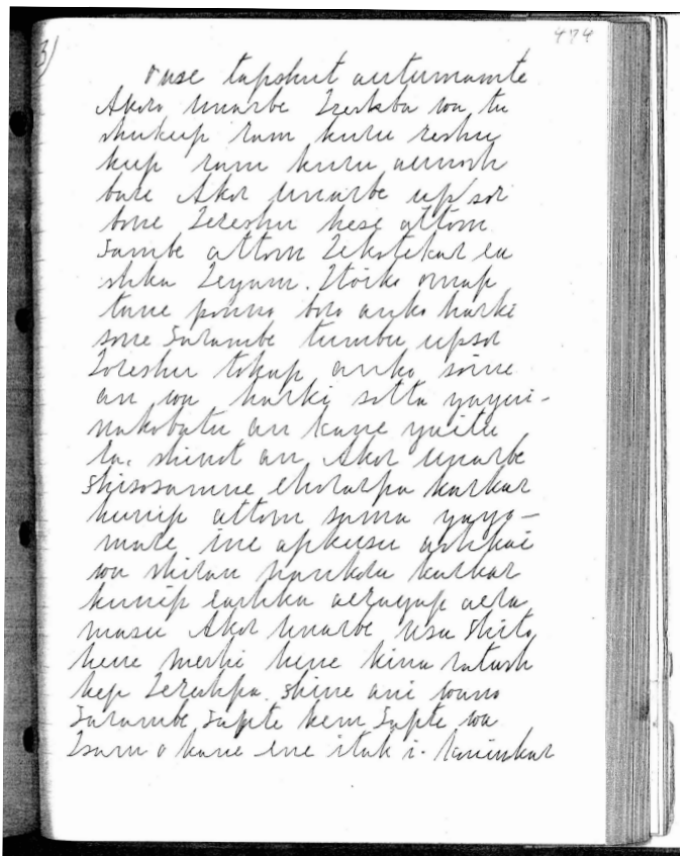 3) 474
ouse tapshut auturnamte
Akoro unarbe Izeskba wa tu
shukup ram kuru reshu
kup ram kuru aeunosh
bare Akor unarbe upsor
bone Iereshu hese attom
Sambe attom Iekotekar ea
shka Ieyam. Itoiko omap
tane ponno boro anko harki
sone Sarambe tumbu upsor
Ioreshu tokap anko soine
an wa harki sotta yayui-
nakobatu an kane yaitu
ta. shinot an Akor unarbe
shisosamne ehorarpa karkar
kunip attom sama yayo-
mare ine apkusu ashkai
wa shiran karkar
kunip eashka aerayap aera
masu Akor unarbe usa shito
hene meshi hene kina ratash
kep Iereahpa. shine ani wano
Sarambe Sapte kem Sapte wa
Isam o kane ene itak i. Kaninkar